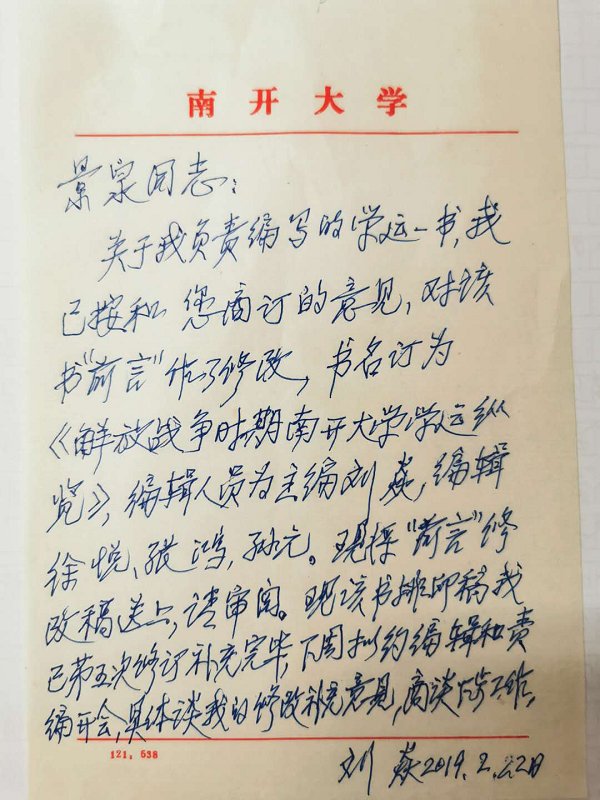 南开大学
景泉同志：
关于我负责编写的学运一书，我
已按和您商订的意见，对该
书“前言”作了修改，书名订为
《解放战争时期南开大学学运纵
览》，编辑人员为主编刘焱，编辑
徐悦、张鸿、孙元。现将“前言”修
改稿送上，请审阅。现该书排印稿我
已第五次修订补充完毕，下周拟约编辑和责
编开会，具体谈我的修改补充意见，商谈下步工作。
121，538
刘焱2019.2.22日